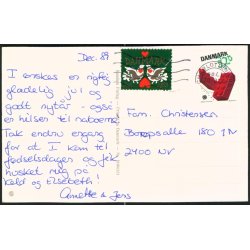 Dec. 89
I ønskes en rigtig
glædelig jul og
godt nytår - også
en hilsen til naboerne.
Tak endnu engang
for at I kom til
fødselsdagen og fik
husket mig på
Keld og Elsebeth!
Annette & Jens
DANMARK
Fam. Christensen
180
2400 NV